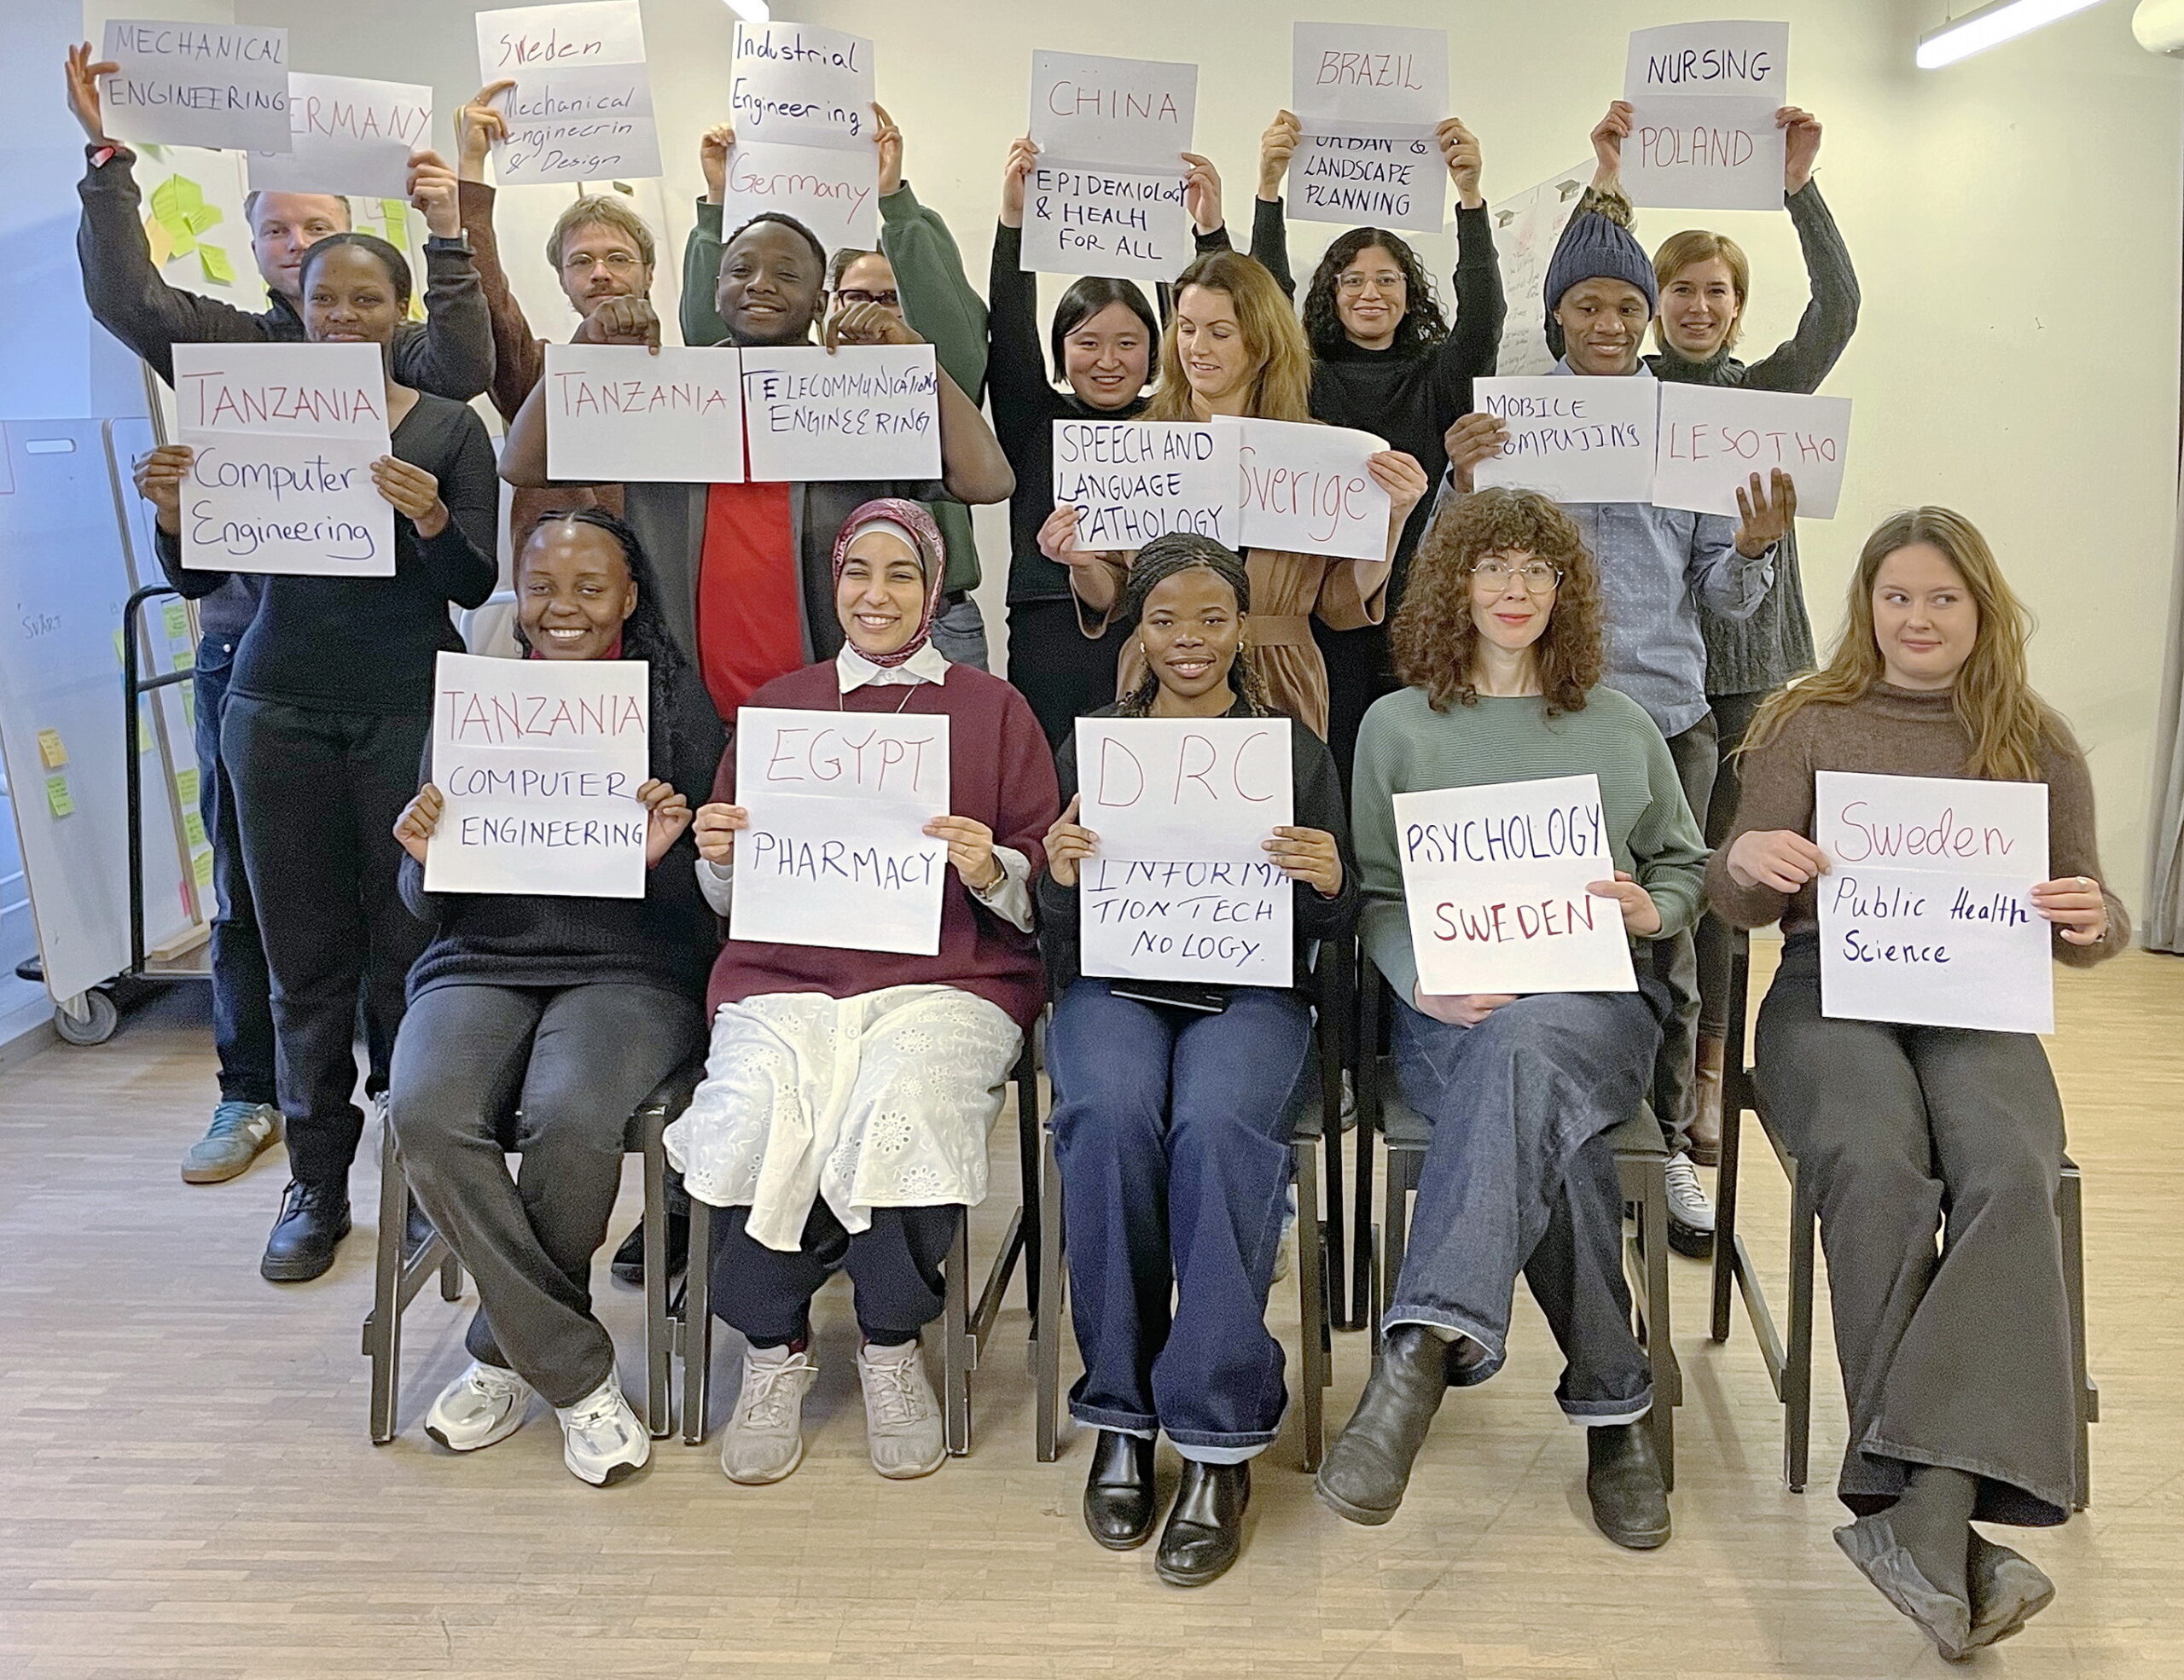 MECHANICAL
ENGINEERING
ERMANY
Sweden
Mechanical
engineerin
& Design
Industrial
Engineering
Germany
CHINA
EPIDEMIOLOGY
& HEALH
FOR ALL
BRAZIL
URBAN &
LANDSCAPE
PLANNING
NURSING
POLAND
TANZANIA
Computer
Engineering
TANZANIA
TELECOMMUNICATIONS
ENGINEERING
SPEECH AND
LANGUAGE
PATHOLOGY
Sverige
MOBILE
COMPUTING
LESOTHO
TANZANIA
COMPUTER
ENGINEERING
EGYPT
PHARMACY
DRC
INFORMA
TION TECH
NOLOGY.
PSYCHOLOGY
SWEDEN
Sweden
Public Health
Science
SVART